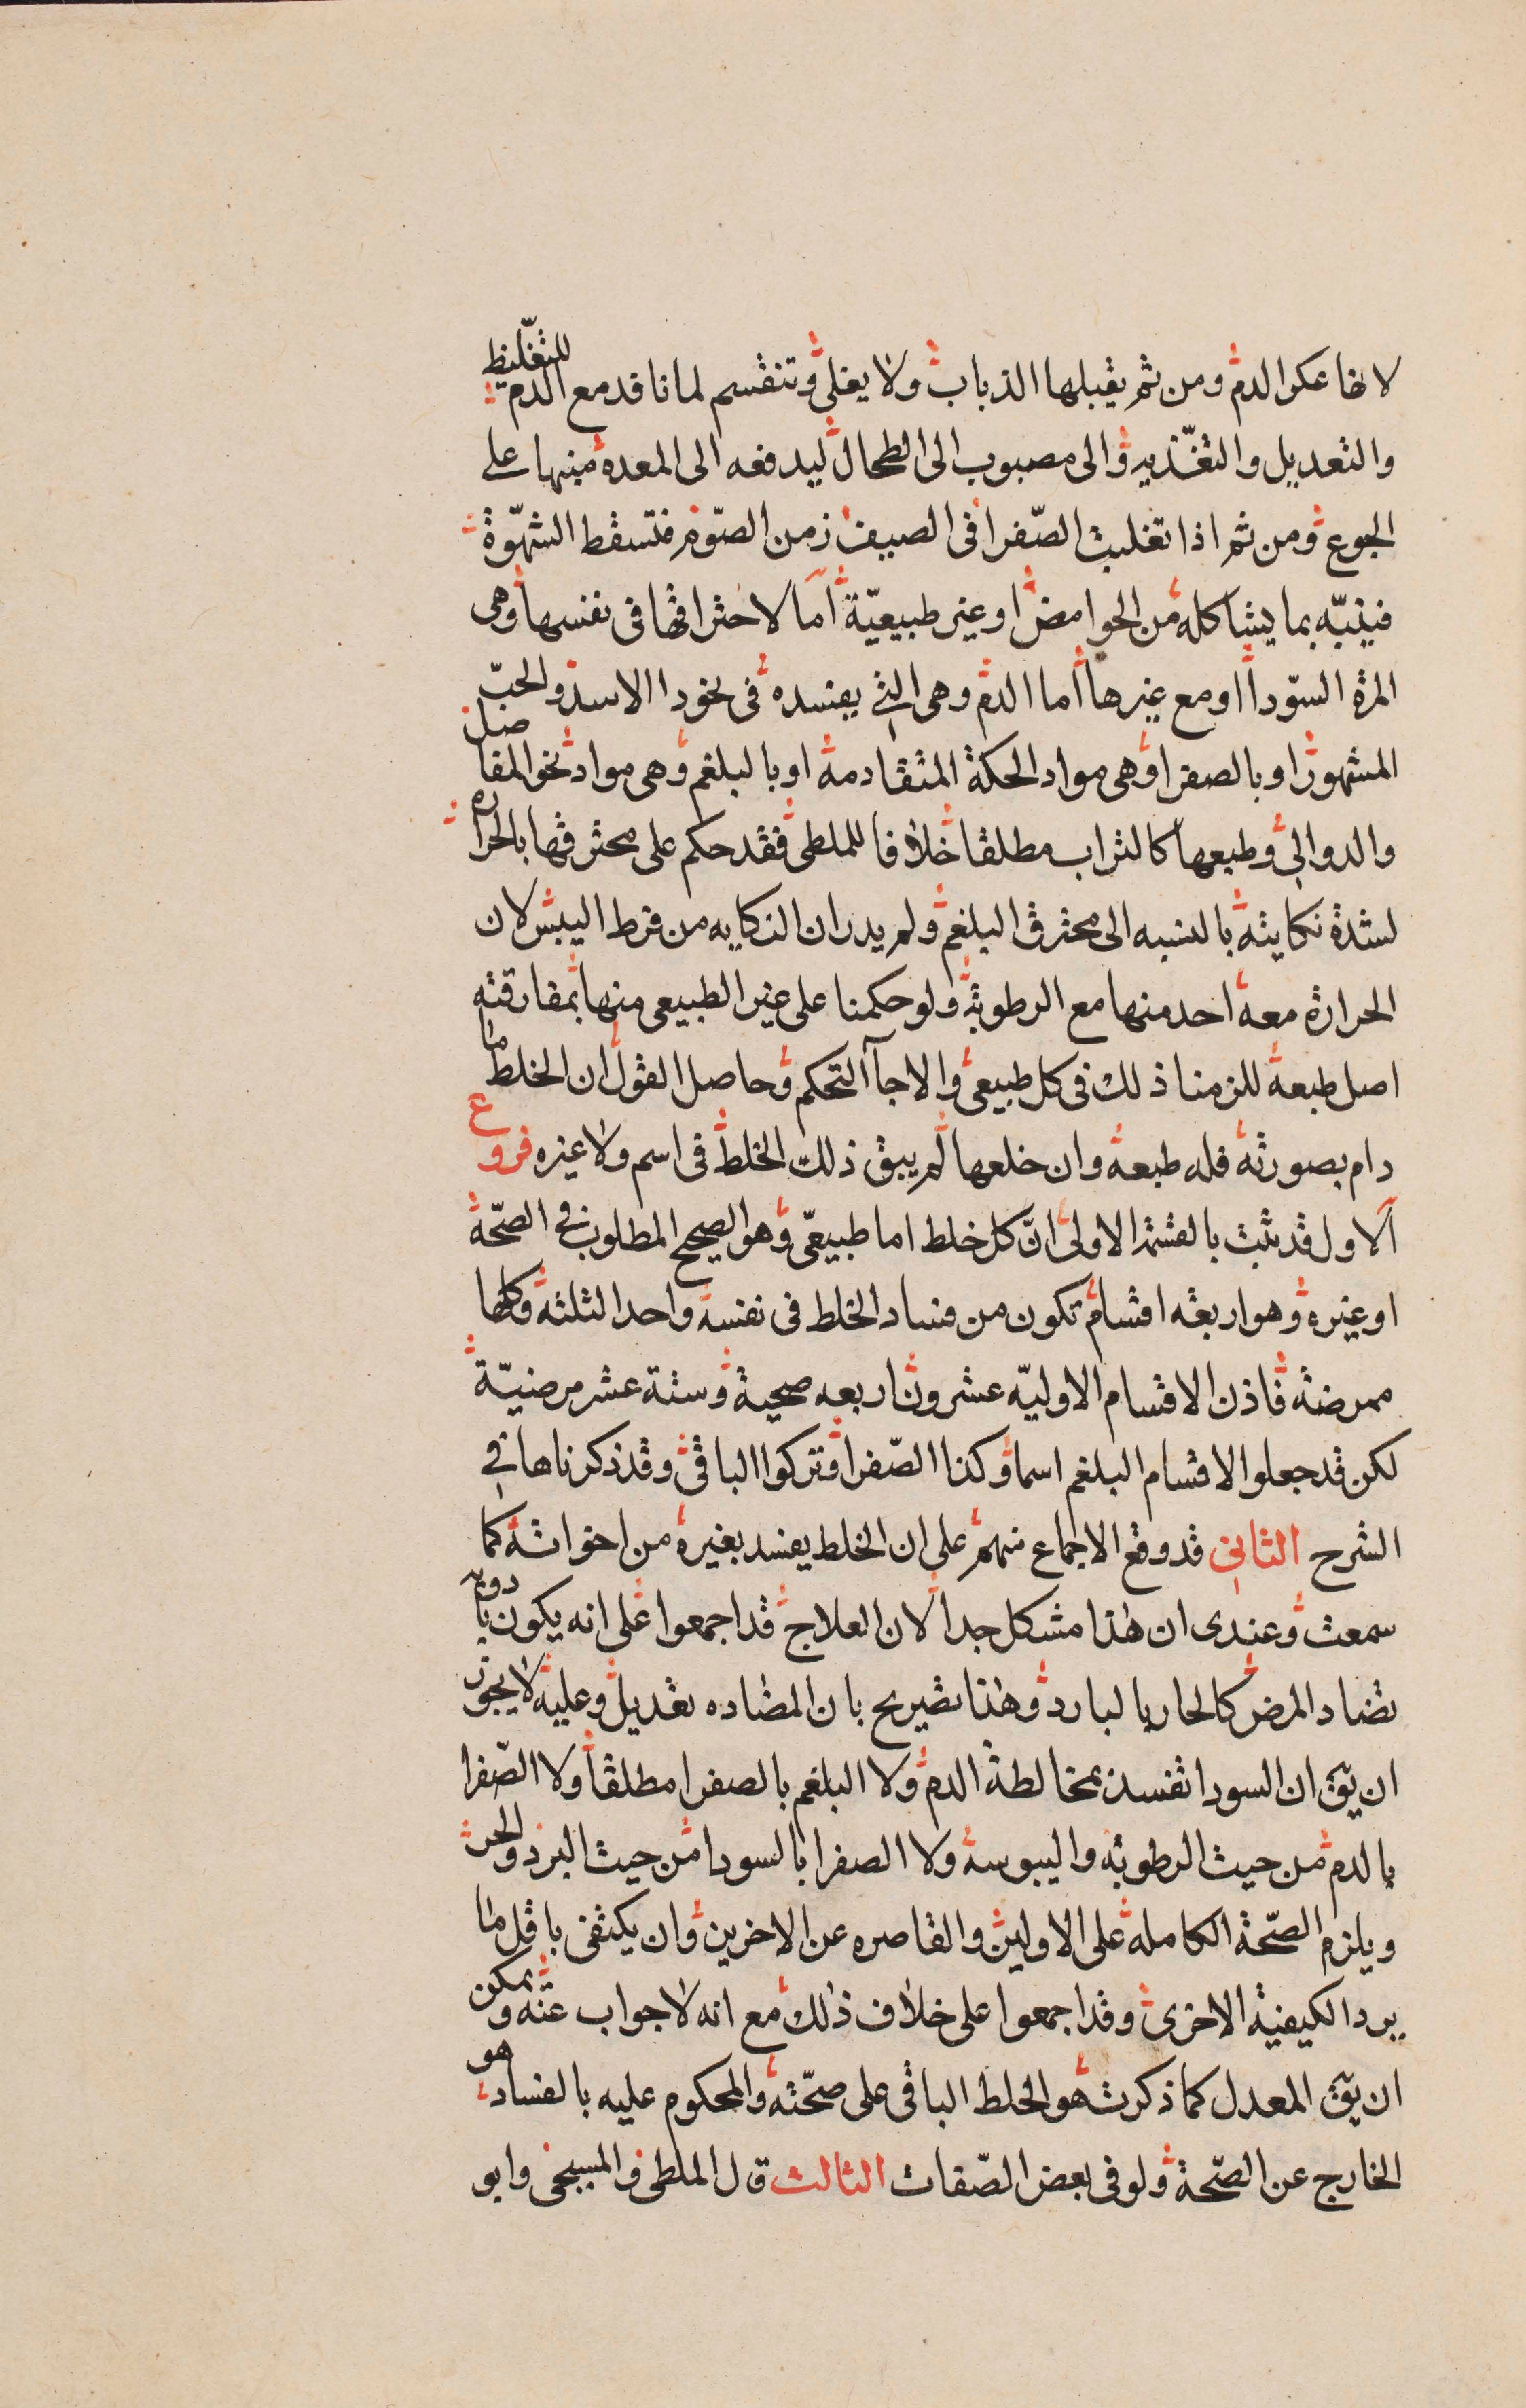 لانها عكر الدم ومن ثم يقبلها الذباب ولا يغلى وتنقسم لما نا قد مع الدم للتغليظ
والتعديل والتغذيه والى مصبوب الى الطحال ليدفعه الى المعده منبها على
الجوع ومن ثم اذا تغلبت الصّفرا فى الصيف زمن الصّوم فتسقط الشهّوة
فينبّه بما يشاكله من الحوامض او غير طبيعيّة اما لاحتراقها فى نفسها وهى
المرة السّودا او مع غيرها اما الدم وهى التى يفسده فى نحو دا الاسد والحبّ
المشهور او بالصفرا وهى مواد الحكة المتقادمة او بالبلغم وهى مواد نحو المفاصل
والدوالى وطبعها كالتراب مطلقا خلافا للملطى فقد حكم على محترقها بالحراره
لشدة نكايته بالنسبه الى محترق البلغم ولم يدر ان النكايه من فرط اليبس لان
الحرارة معه احد منها مع الرطوبة ولو حكمنا على غير الطبيعى منها بمفارقته
اصل طبعه للزمنا ذلك فى كل طبيعى والا جآ التحكم وحاصل القول ان الخلط ما
دام بصورته فله طبعه وان خلعها لم يبق ذلك الخلط فى اسم ولا غيره فروع
الاول قد ثبت بالقسمة الاولى انّ كل خلط اما طبيعىّ وهو الصحيح المطلوب فى الصّحة
او غيره وهو اربعه اقسام تكون من فساد الخلط فى نفسه واحد الثلثة وكلها
ممرضة فاذن الاقسام الاوليّه عشرون اربعه صحيحة وستة عشر مرضيّة
لكن قد جعلوا لاقسام البلغم اسما وكذا الصّفرا وتركوا الباقى وقد ذكرناها فى
الشرح الثانى قد وقع الاجماع منهم على ان الخلط يفسد بغيره من اخواته كما
سمعت وعندى ان هذا مشكل جدا لان العلاج قد اجمعوا على انه يكون بادويه
تضاد المرض كالحار بالبارد وهذا تصريح بان المضاده تعديل وعليه لا يجوز
ان يق ان السودا تفسد بمخالطة الدم ولا البلغم بالصفرا مطلقا ولا الصّفرا
بالدم من حيث الرطوبه واليبوسه ولا الصفرا بالسودا من حيث البرد والحر
ويلزم الصّحة الكامله على الاولين والقاصره عن الاخرين وان يكتفى باقل ما
يرد الكيفية الاخرى وقد اجمعوا على خلاف ذلك مع انه لا جواب عنه ويمكن
ان يق المعدل كما ذكرت هو الخلط الباقى على صحّته والمحكوم عليه بالفساد هو
الخارج عن الصّحة ولو فى بعض الصّفات الثالث قال الملطى والمسيحى وابو